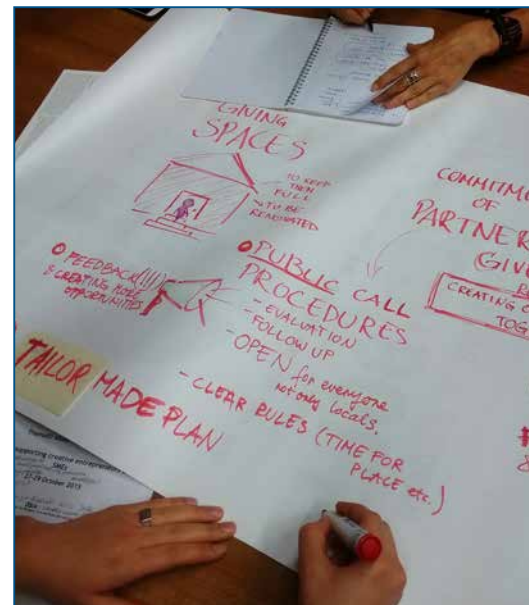 GIVING
SPACES
TO KEEP
THEM
FULL
TO BE
RENOVATED
COMMITM
OF
PARTNER
GIV
CREATING
TOG
• FEEDBACK(!!!!)
& CREATING MORE
OPPORTUNITIES
• PUBLIC CALL
PROCEDURES
- EVALUATION
FOLLOW UP
- OPEN for everyone
not only locals.
- CLEAR RULES (TIME FOR
PLACE etc.)
TAILOR MADE PLAN
supporting creative entrepreneurs
SMEs
October 2015